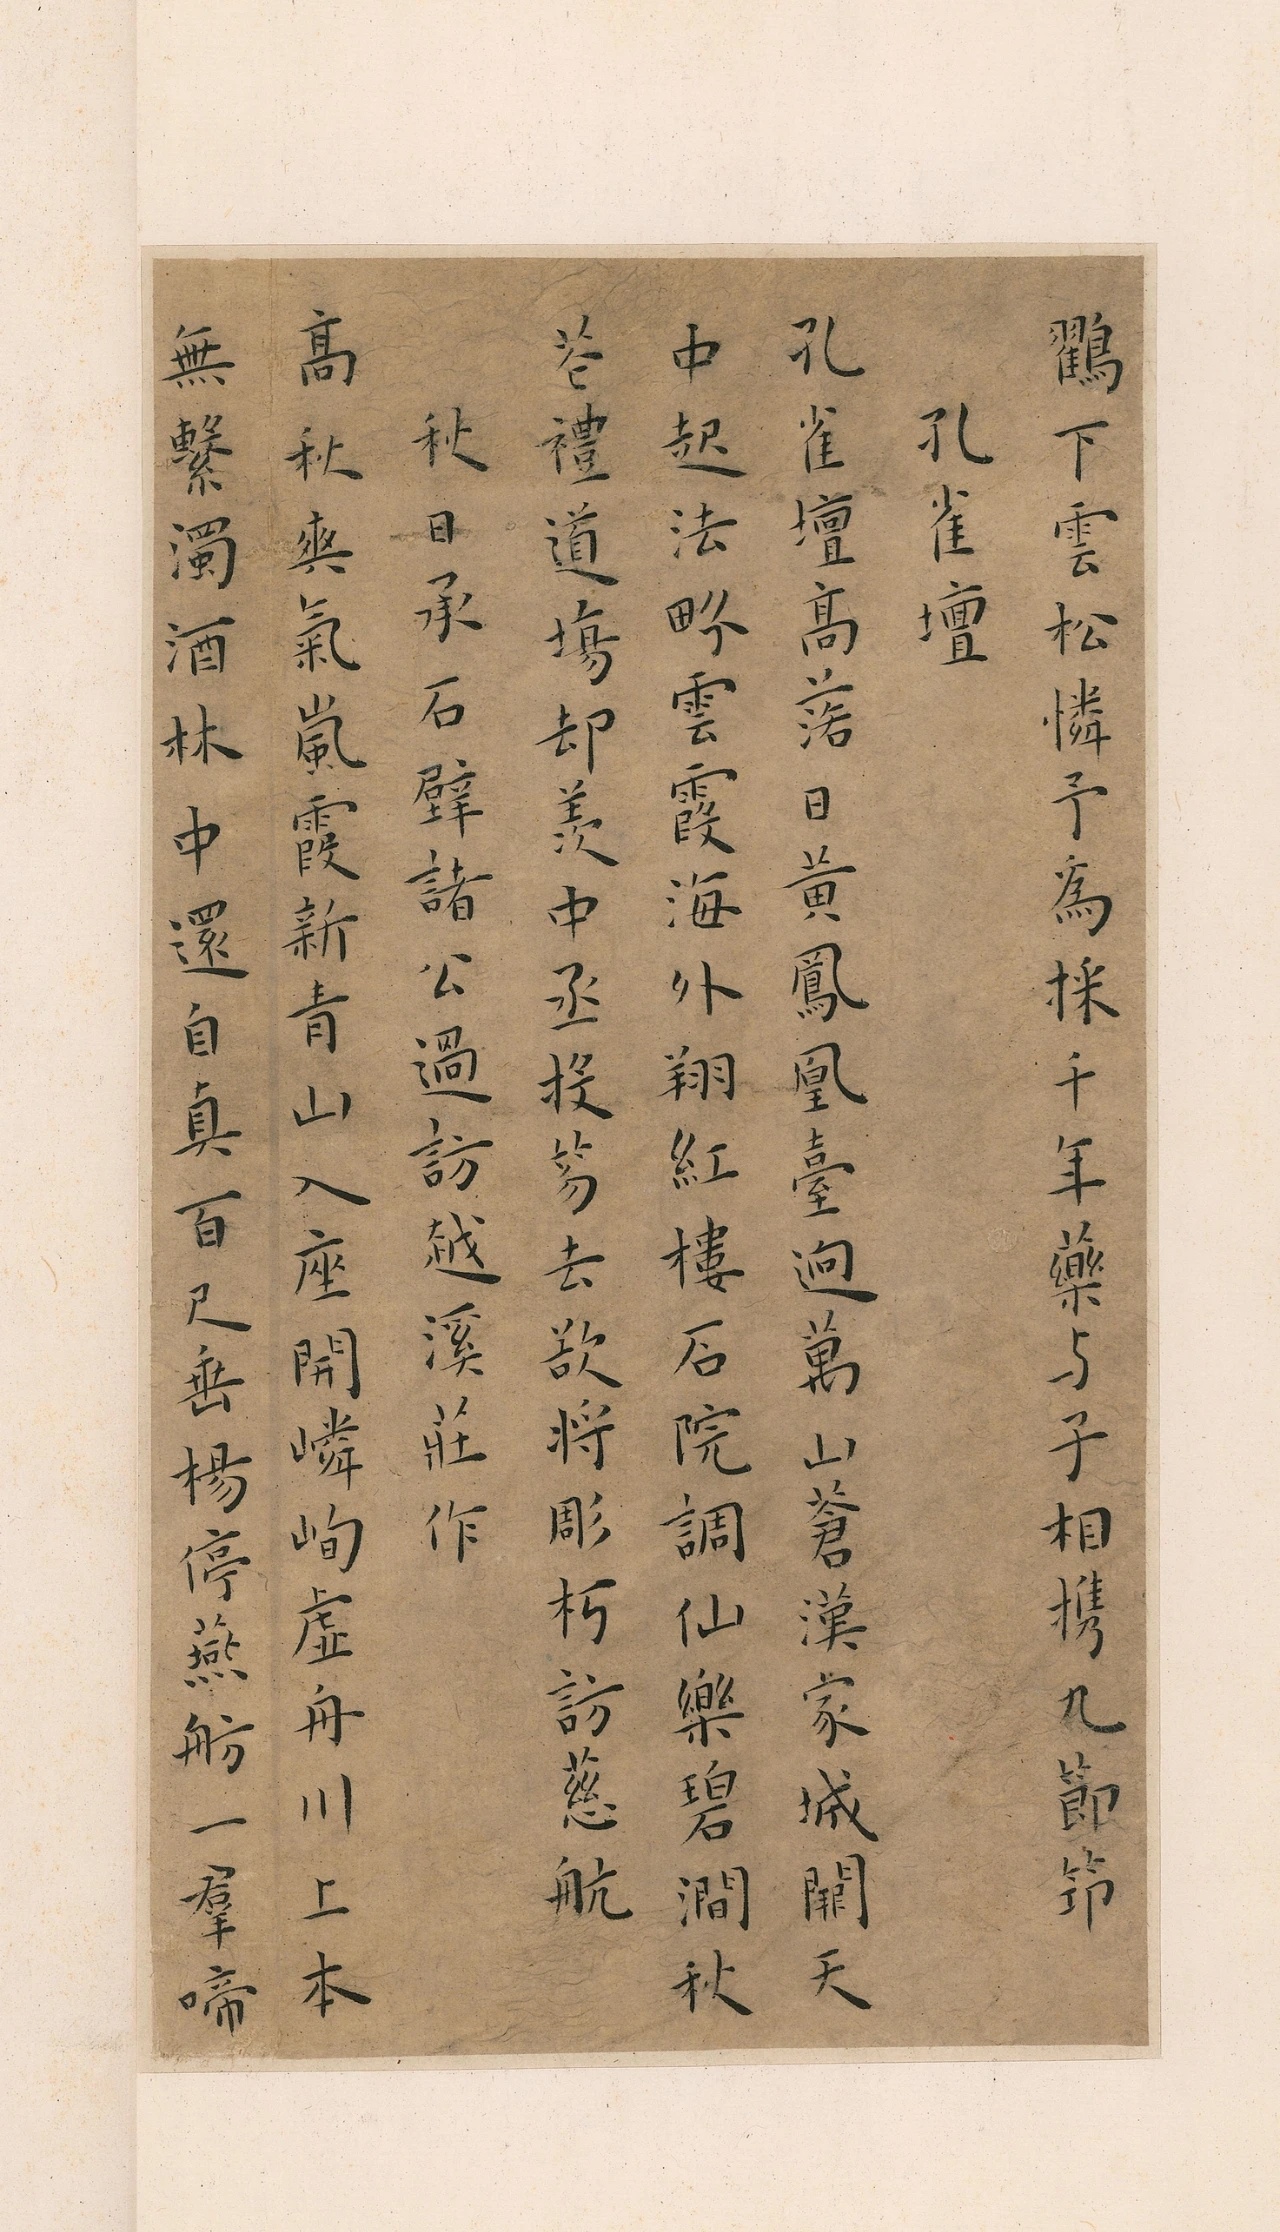 鸐下雲松憐予為採千年藥与子相攜九節筇
孔雀壇
孔雀壇髙落日黃鳳凰臺迥萬山蒼漢家城闕天
中起法畧雲霞海外翔紅樓石院調仙樂碧澗秋
苍禮道塲却羡中丞投笏去欲将彫朽訪慈航
秋日承石壁諸公過訪越溪莊作
髙秋爽氣嵐霞新青山入座開嶙峋虛舟川上本
無繫濁酒林中還自真百尺垂楊停燕舫一羣啼